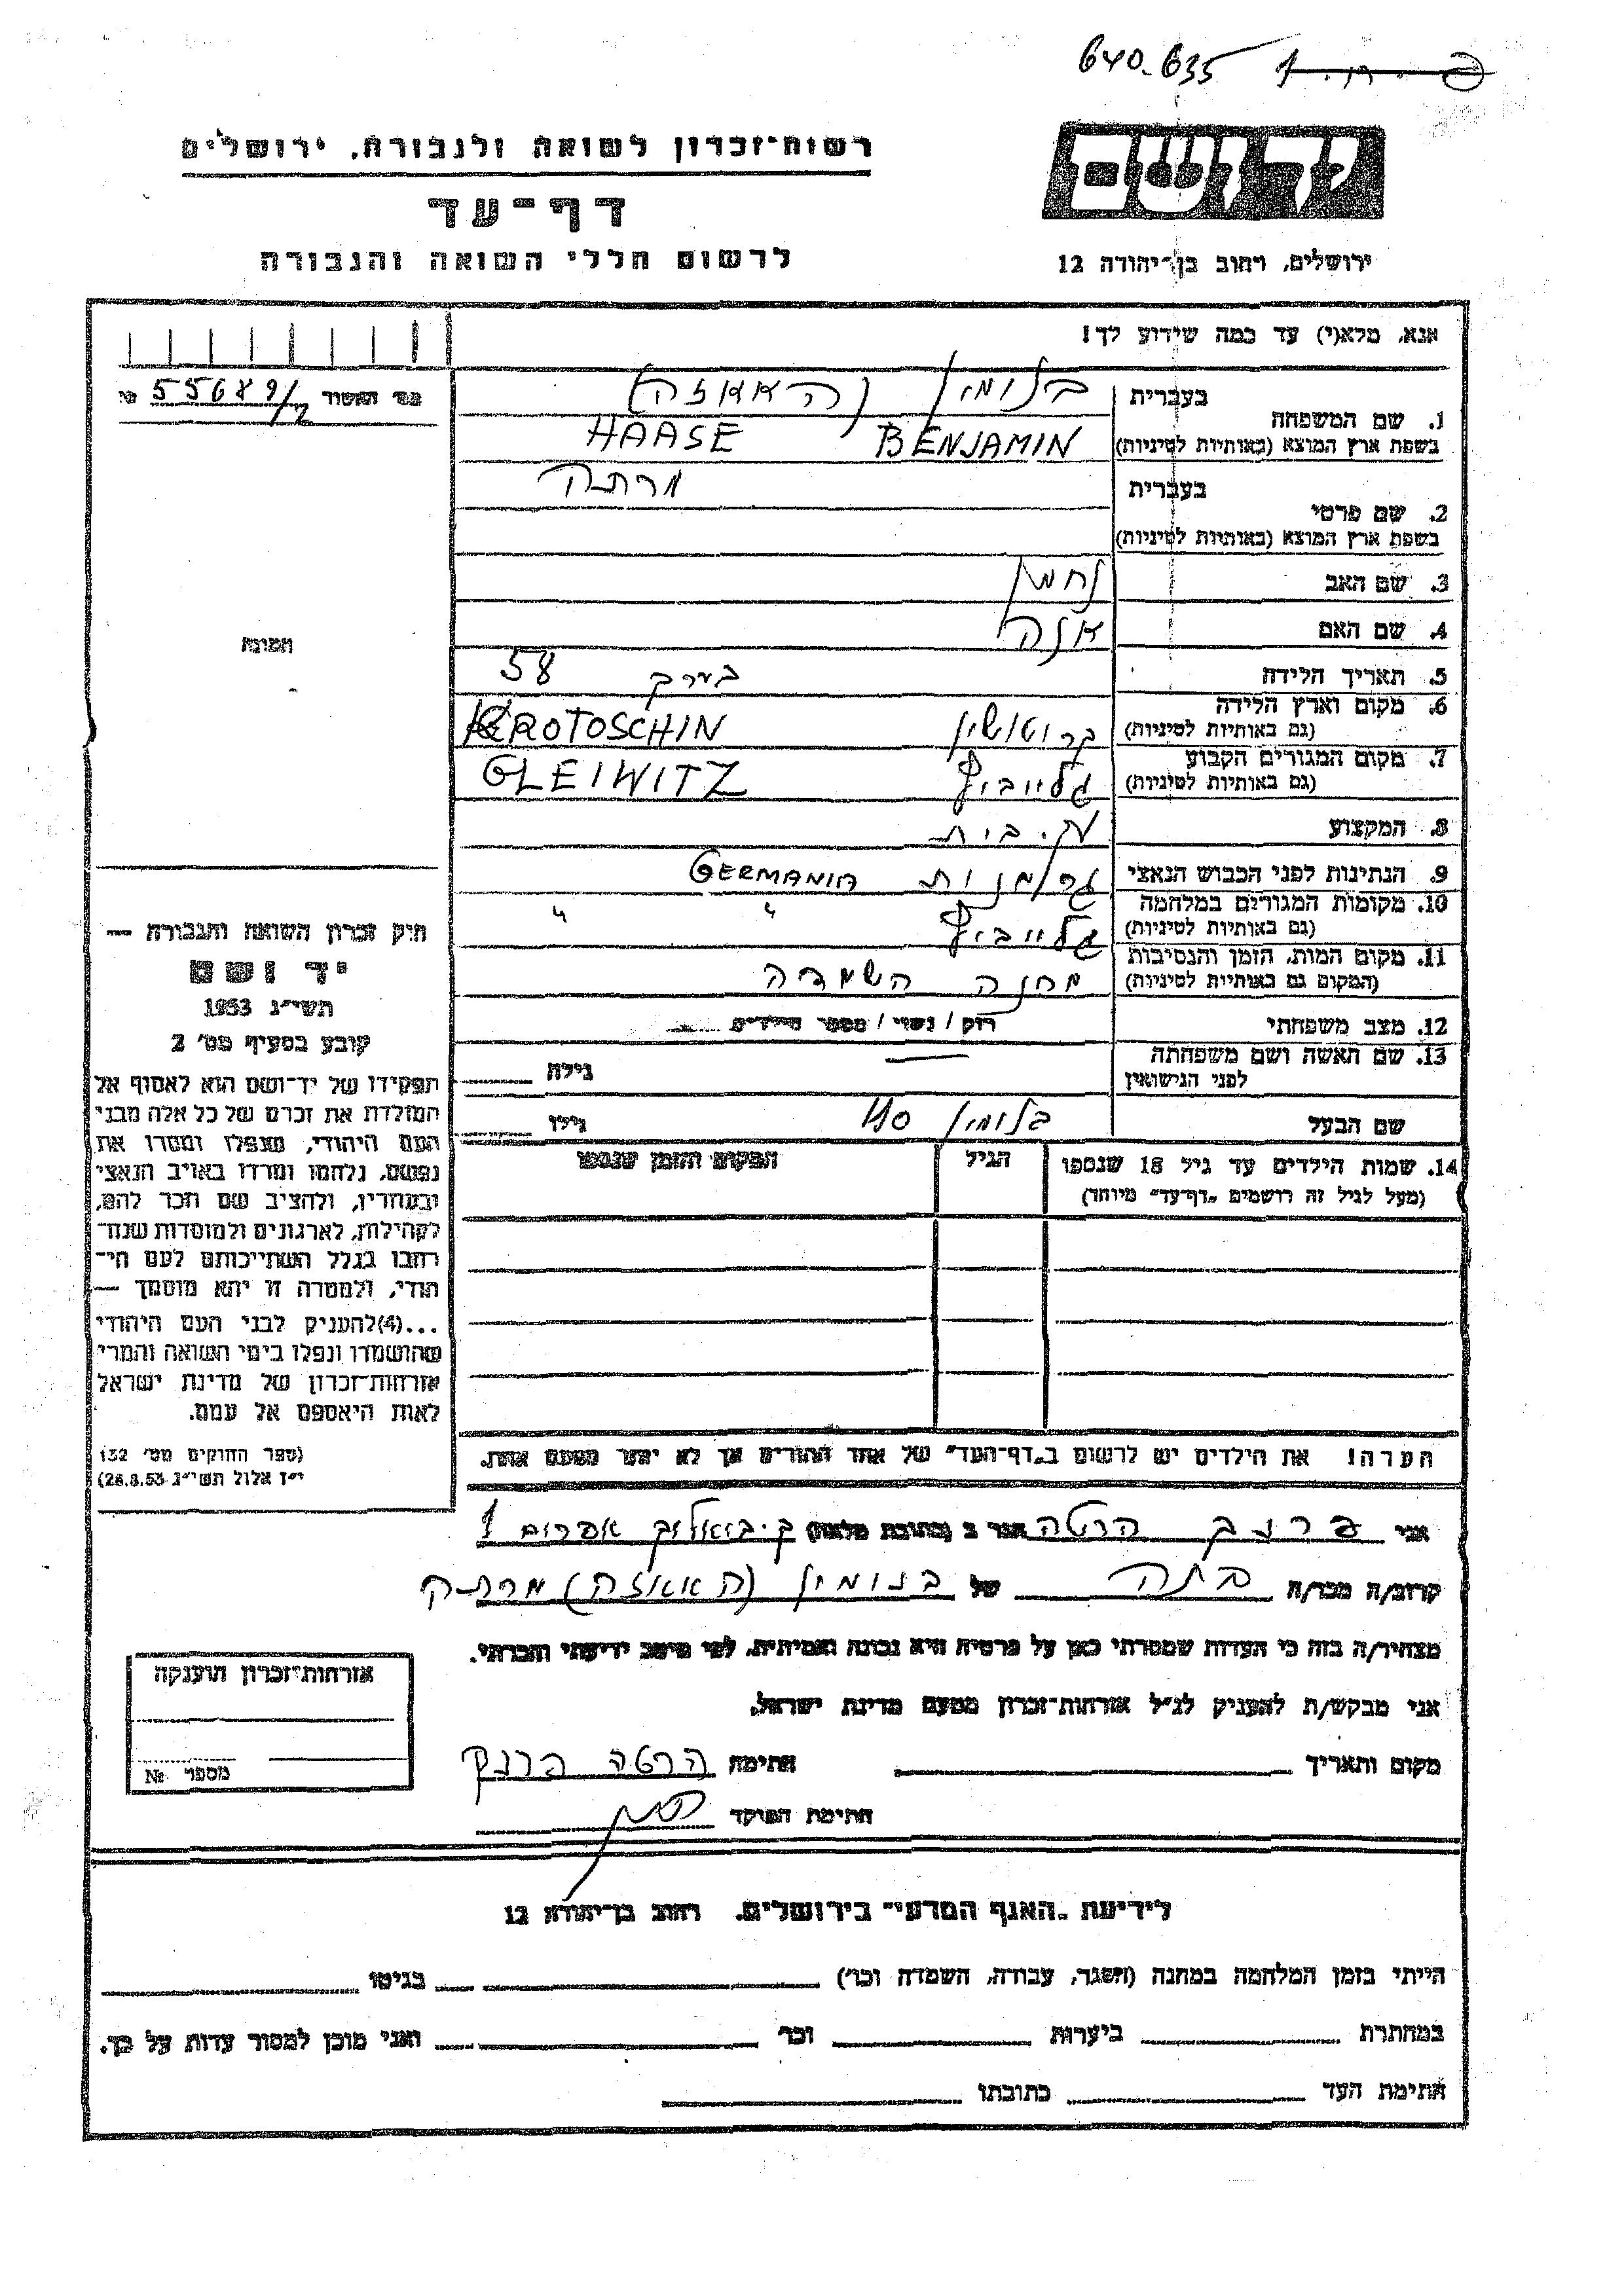 640.635
רשות־זכרון לשואה ולגבורה, ירושלים
דף־עד
לרשום חללי השואה והגבורה
יד ושם
ירושלים, רחוב בן־יהודה 12
אנא, מלא(י) עד כמה שידוע לך!
מס׳ האשור 55689/2 №
1. שם המשפחה
בעברית בנומין (האאזה)
בשפת ארץ המוצא (באותיות לטיניות) BENJAMIN HAASE
2. שם פרטי
בעברית מרתה
בשפת ארץ המוצא (באותיות לטיניות)
3. שם האב נחמן
4. שם האם אנה
5. תאריך הלידה בערך 58
6. מקום וארץ הלידה (גם באותיות לטיניות) קרוטושין KROTOSCHIN
7. מקום המגורים הקבוע (גם באותיות לטיניות) גלייביץ GLEIWITZ
8. המקצוע עק. בית
9. הנתינות לפני הכבוש הנאצי גרמנית GERMANIA
10. מקומות המגורים במלחמה (גם באותיות לטיניות) גלייביץ " "
11. מקום המות, הזמן והנסיבות (המקום גם באותיות לטיניות) מחנה השמדה
12. מצב משפחתי רוק / נשוי / מספר הילדים
13. שם האשה ושם משפחתה לפני הנישואין גילה
שם הבעל בנומין גילו
14. שמות הילדים עד גיל 18 שנספו (מעל לגיל זה רושמים „דף־עד" מיוחד)
הגיל
המקום והזמן שנספו
הערה! את הילדים יש לרשום ב„דף־העד" של אחד ההורים אך לא יותר מפעם אחת.
תמונה
חוק זכרון השואה והגבורה —
יד ושם
תשי״ג 1953
קובע בסעיף מס׳ 2
תפקידו של יד־ושם הוא לאסוף אל
המולדת את זכרם של כל אלה מבני
העם היהודי, שנפלו ומסרו את
נפשם, נלחמו ומרדו באויב הנאצי
ובעוזריו, ולהציב שם וזכר להם,
לקהילות, לארגונים ולמוסדות שנח־
רבו בגלל השתייכותם לעם הי־
הודי, ולמטרה זו יהא מוסמך —
...(4)להעניק לבני העם היהודי
שהושמדו ונפלו בימי השואה והמרי
אזרחות־זכרון של מדינת ישראל
לאות היאספם אל עמם.
(ספר החוקים מס׳ 132
י״ז אלול תשי״ג 28.8.53)
אני פרנק הרטה הגר ב (כתובת מלאה) ק. ביאליק אפרים 1
קרוב/ה מכר/ה בתה של בנומין (האאזה) מרתה
מצהיר/ה בזה כי העדות שמסרתי כאן על פרטיה היא נכונה ואמיתית, לפי מיטב ידיעתי והכרתי.
אני מבקש/ת להעניק לנ״ל אזרחות־זכרון מטעם מדינת ישראל.
מקום ותאריך חתימה הרטה פרנק
חתימת הפוקד
אזרחות־זכרון הוענקה
מספר №
לידיעת „האגף המדעי" בירושלים, רחוב בן־יהודה 12
הייתי בזמן המלחמה במחנה (הסגר, עבודה, השמדה וכו׳) בגיטו
במחתרת ביערות וכו׳ ואני מוכן למסור עדות על כך.
חתימת העד כתובתו